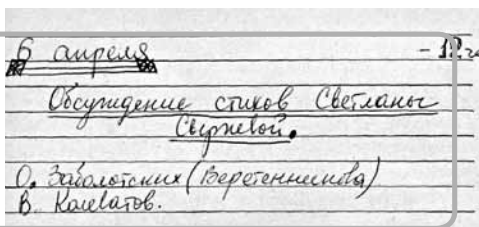 6 апреля - 12 ч
Обсуждение стихов Светланы
Сырневой.
О. Заболотских (Веретенникова)
В. Колеватов.